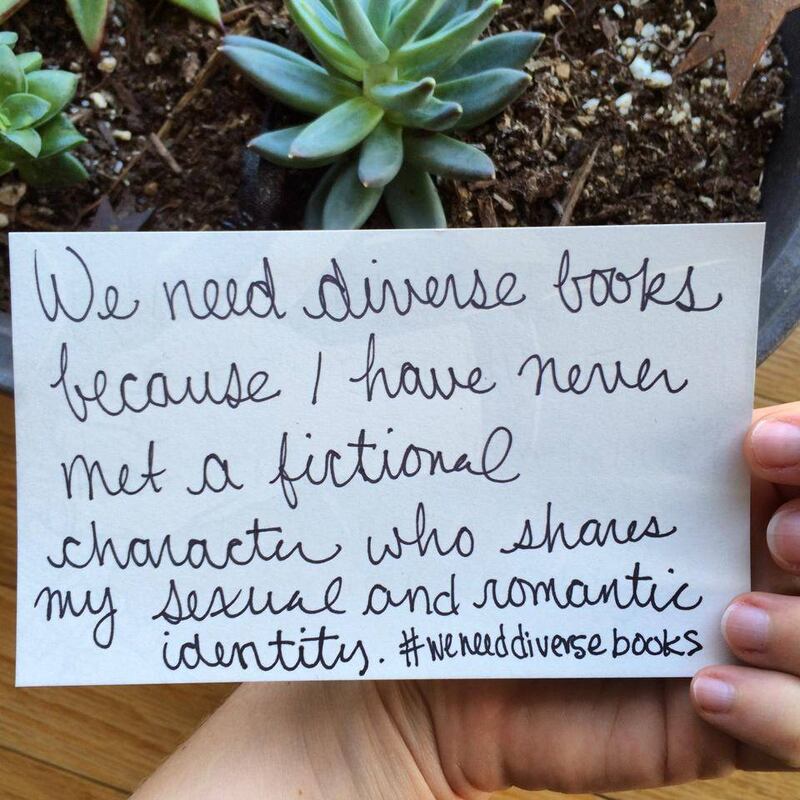 We need diverse books
because I have never
met a fictional
character who shares
my sexual and romantic
identity. #weneeddiversebooks